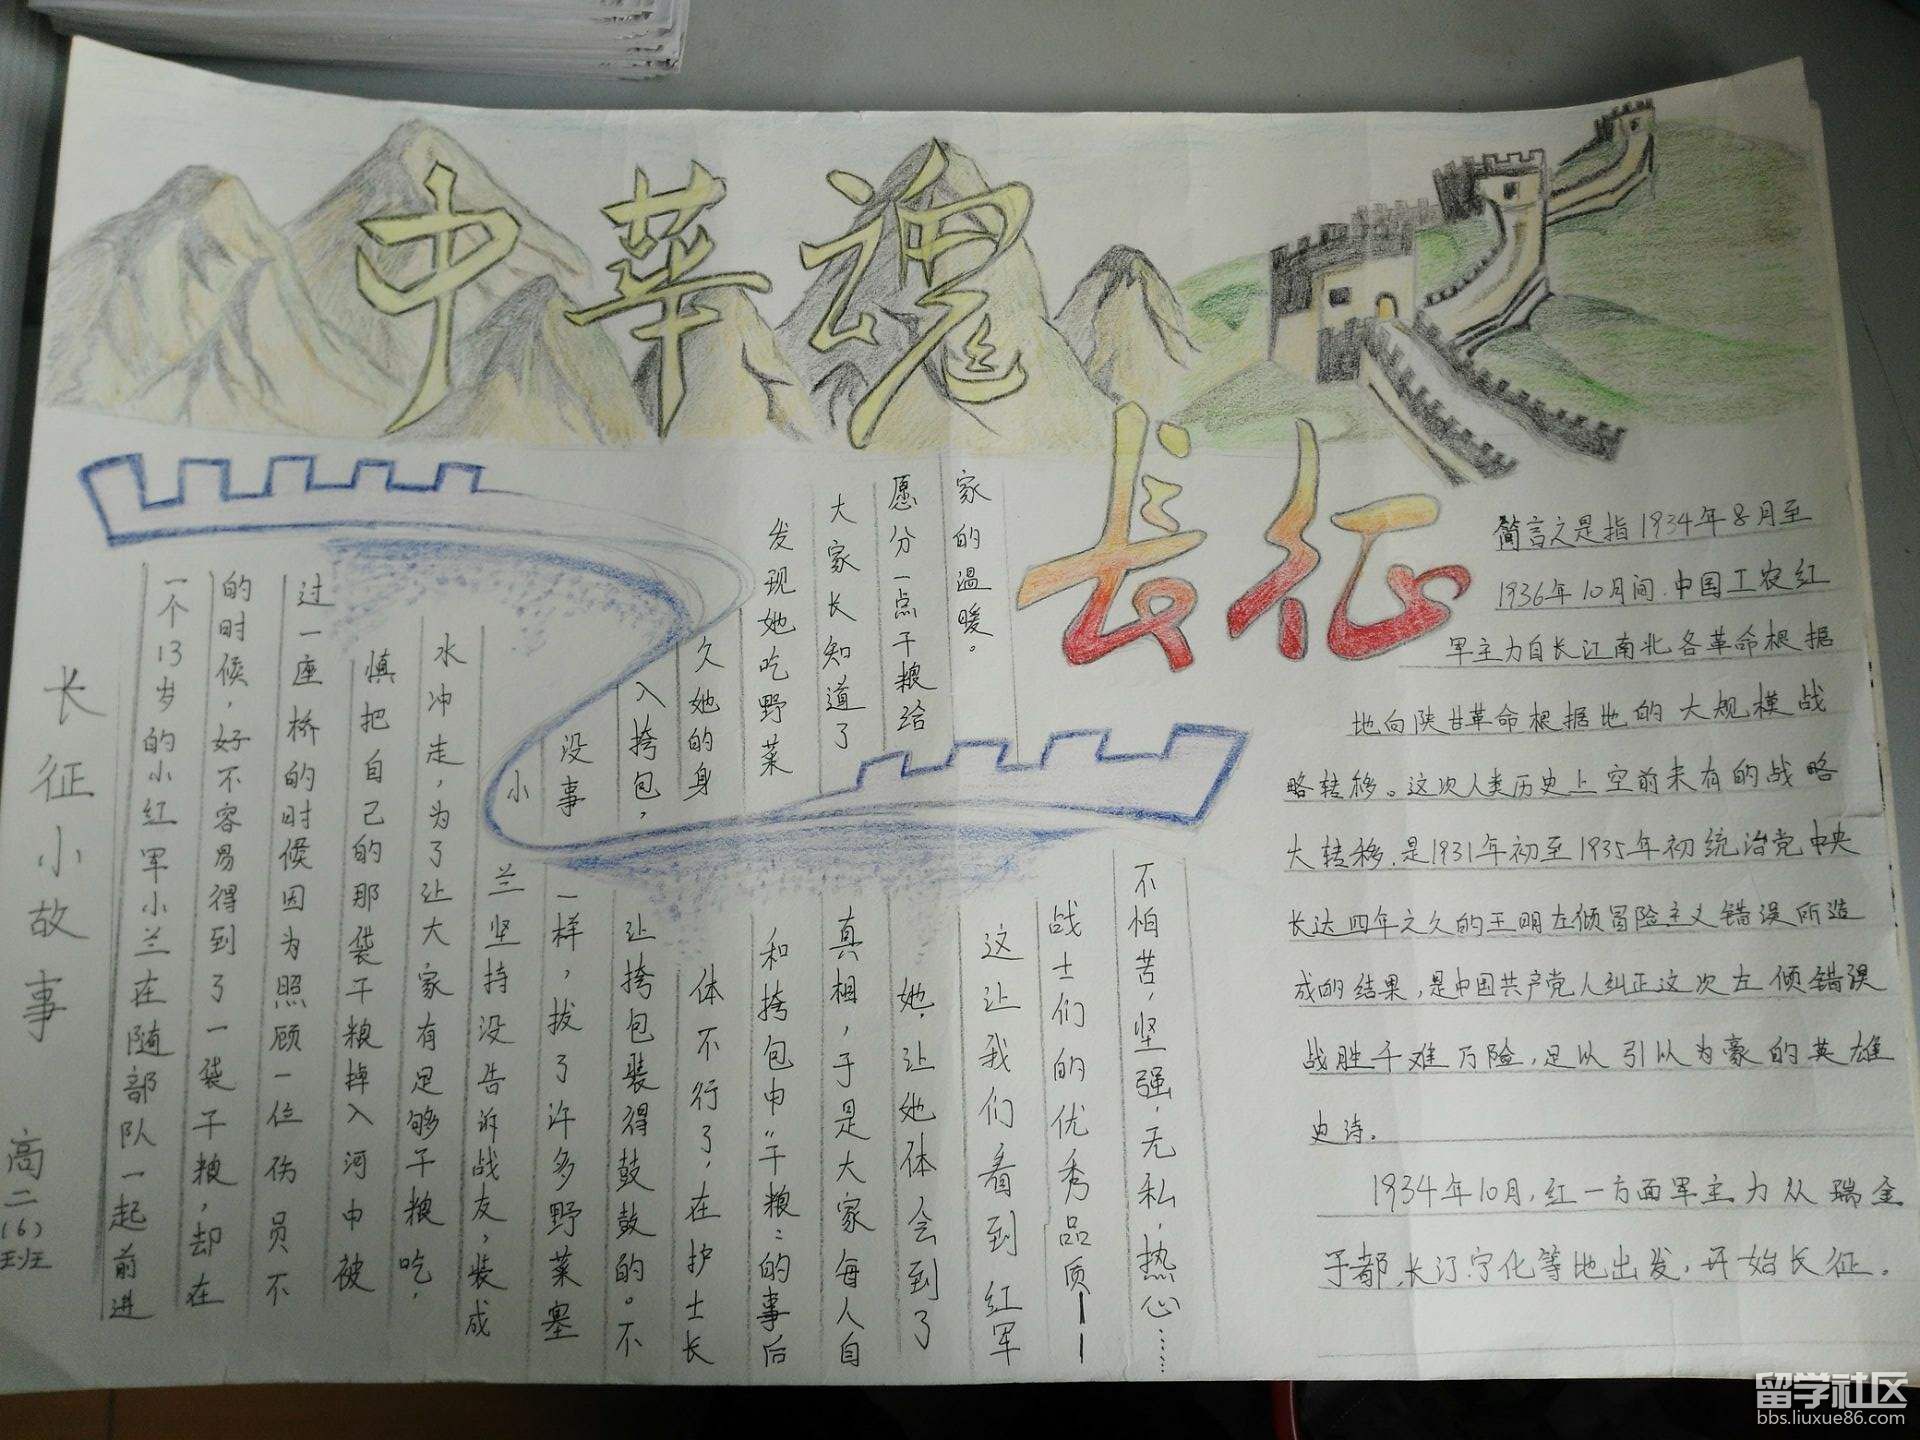 中华魂
长征
长征小故事
高二(6)班
一个13岁的小红军小兰在随部队一起前进
的时候，好不容易得到了一袋干粮，却在
过一座桥的时候因为照顾一位伤员不
慎把自己的那袋干粮掉入河中被
水冲走，为了让大家有足够干粮吃，
小兰坚持没告诉战友，装成
没事一样，拔了许多野菜塞
入挎包，让挎包装得鼓鼓的。不
久她的身体不行了，在护士长
发现她吃野菜和挎包中“干粮”的事后
大家长知道了真相，于是大家每人自
愿分一点干粮给她，让她体会到了
家的温暖。
这让我们看到红军
战士们的优秀品质——
不怕苦，坚强，无私，热心……
简言之是指1934年8月至
1936年10月间，中国工农红
军主力自长江南北各革命根据
地向陕甘革命根据地的大规模战
略转移。这次人类历史上空前未有的战略
大转移，是1931年初至1935年初统治党中央
长达四年之久的王明左倾冒险主义错误所造
成的结果，是中国共产党人纠正这次左倾错误
战胜千难万险，足以引以为豪的英雄
史诗。
1934年10月，红一方面军主力从瑞金
于都、长汀、宁化等地出发，开始长征。
留学社区
bbs.liuxue86.com